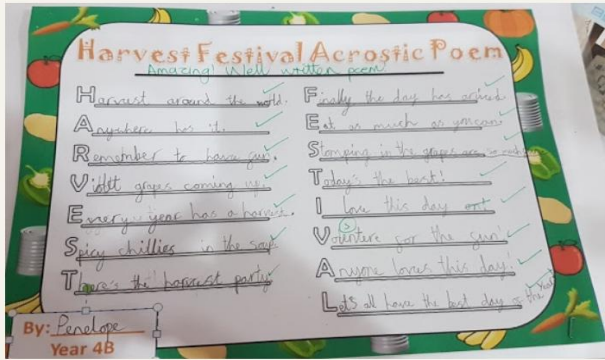 Harvest Festival Acrostic Poem
Amazing! Well written poem.
Harvest around the world.
Anywhere has it.
Remember to have fun.
Violet grapes coming up.
Every year has a harvest.
Spicy chillies in the soup
There's the harvest party
Finally the day has arrived
Eat as much as you can.
Stomping in the grapes are so
Today's the best!
I love this day
for the fun!
Anyone loves this day!
Let's all have the best day of the year
By: Penelope
Year 4B